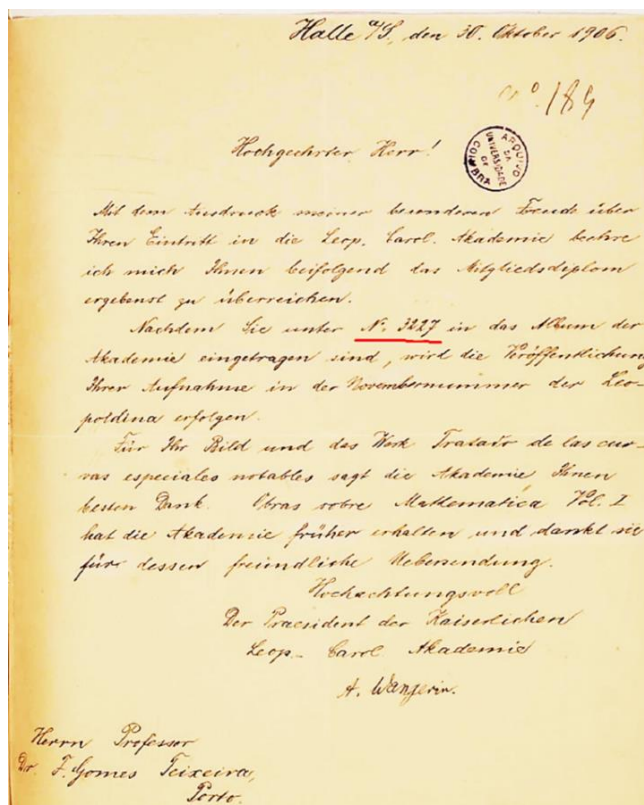 Halle a/S, den 30. Oktober 1906.
No. 184
Hochgeehrter Herr!
ARQUIVO DA UNIVERSIDADE DE COIMBRA
Mit dem Ausdruck meiner besonderen Freude über
Ihren Eintritt in die Leop. Carol. Akademie beehre
ich mich Ihnen beifolgend das Mitgliedsdiplom
ergebenst zu überreichen.
Nachdem Sie unter N. 3227 in das Album der
Akademie eingetragen sind, wird die Veröffentlichung
Ihrer Aufnahme in der Novembernummer der Leo-
poldina erfolgen.
Für Ihr Bild und das Werk Tratado de las cur-
vas especiales notables sagt die Akademie Ihnen
besten Dank. Obras sobre Mathematica Vol. I
hat die Akademie früher erhalten und dankt sie
für dessen freundliche Uebersendung.
Hochachtungsvoll
Der Praesident der Kaiserlichen
Leop. Carol Akademie
A. Wangerin.
Herrn Professor
Dr. F. Gomes Teixeira,
Porto.